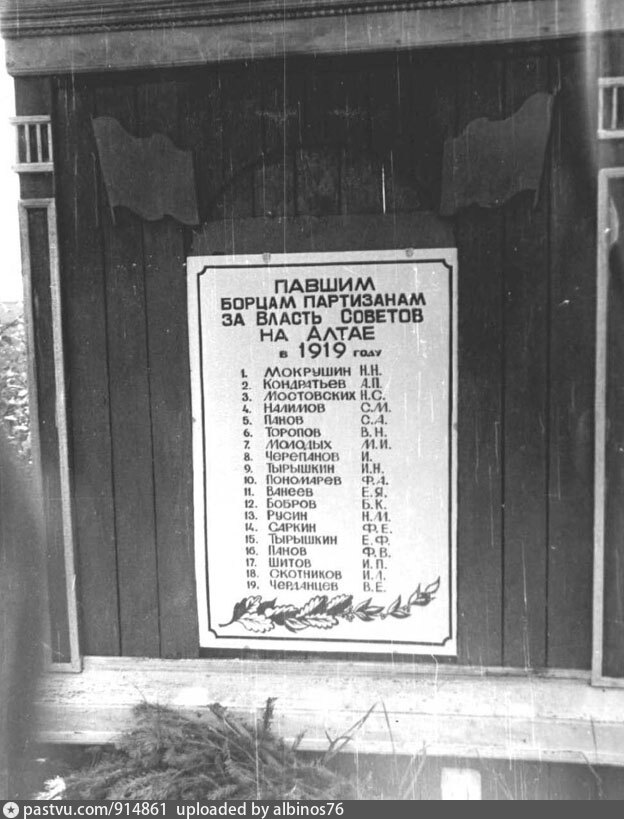 ПАВШИМ
БОРЦАМ ПАРТИЗАНАМ
ЗА ВЛАСТЬ СОВЕТОВ
НА АЛТАЕ
В 1919 ГОДУ
1. МОКРУШИН Н.Н.
2. КОНДРАТЬЕВ А.П.
3. МОСТОВСКИХ Н.С.
4. НАЛИМОВ С.М.
5. ПАНОВ С.А.
6. ТОРОПОВ В.Н.
7. МОЛОДЫХ М.И.
8. ЧЕРЕПАНОВ И.
9. ТЫРЫШКИН И.Н.
10. ПОНОМАРЕВ Ф.А.
11. ВАНЕЕВ Е.Я.
12. БОБРОВ Б.К.
13. РУСИН Н.М.
14. САРКИН Ф.Е.
15. ТЫРЫШКИН Е.Ф.
16. ПАНОВ Ф.В.
17. ШИТОВ И.П.
18. СКОТНИКОВ И.А.
19. ЧЕРДАНЦЕВ В.Е.
pastvu.com/914861 uploaded by albinos76